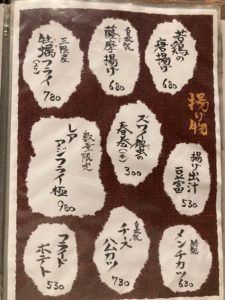 揚げ物
若鶏の
唐揚げ
680
自家製
薩摩揚げ
680
三陸産
牡蠣フライ
780
揚げ出汁
豆富
530
ズワイ蟹の
春巻
300
数量限定
レア
アジフライ極
980
特製
メンチカツ
630
自家製
チーズ
ハムカツ
730
フライド
ポテト
530